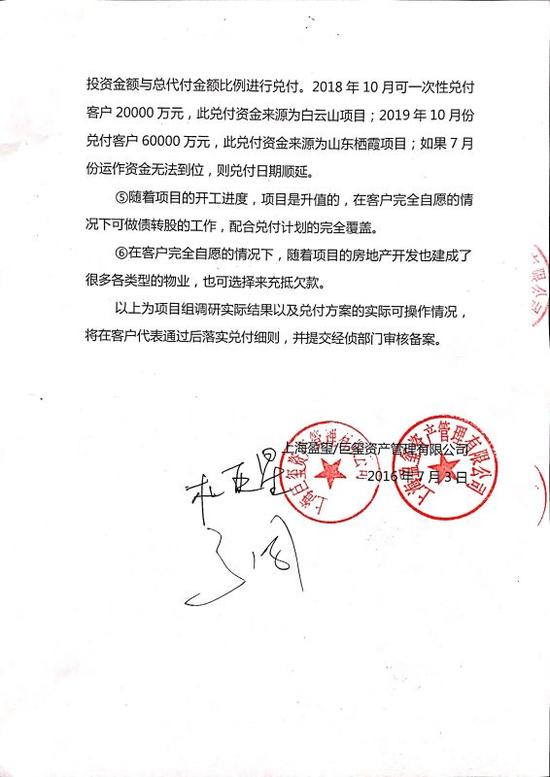 投资金额与总代付金额比例进行兑付。2018 年 10 月可一次性兑付
客户 20000 万元，此兑付资金来源为白云山项目；2019 年 10 月份
兑付客户 60000 万元，此兑付资金来源为山东栖霞项目；如果 7 月
份运作资金无法到位，则兑付日期顺延。
⑤随着项目的开工进度，项目是升值的，在客户完全自愿的情
况下可做债转股的工作，配合兑付计划的完全覆盖。
⑥在客户完全自愿的情况下，随着项目的房地产开发也建成了
很多各类型的物业，也可选择来充抵欠款。
以上为项目组调研实际结果以及兑付方案的实际可操作情况，
将在客户代表通过后落实兑付细则，并提交经侦部门审核备案。
限公司
上海盈玺/巨玺资产管理有限公司
2016 年 7 月 3 日
上海巨玺资产管理有限公司
上海盈玺资产管理有限公司